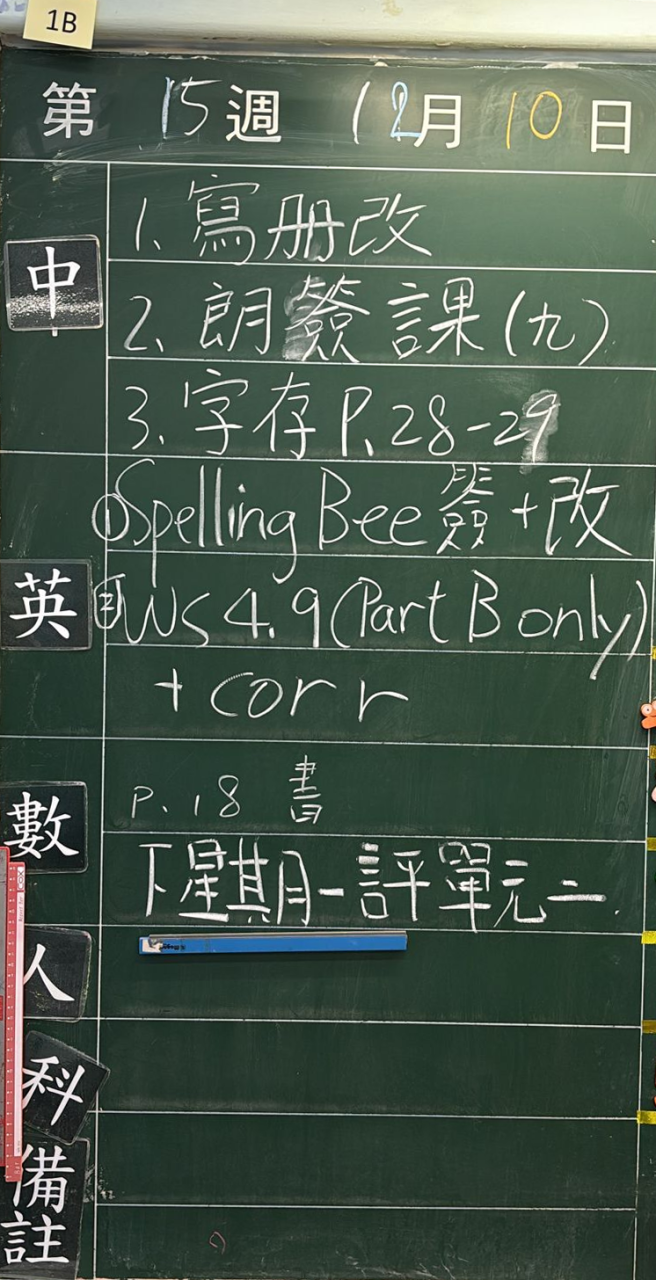 1B
第 15 週 12月 10 日
中
1. 寫册改
2. 朗簽 課(九)
3. 字存 P. 28-29
英
① Spelling Bee 簽+改
② WS 4.9 (Part B only)
+ corr
數
P. 18 書
下星期一評單元二.
人
科
備註